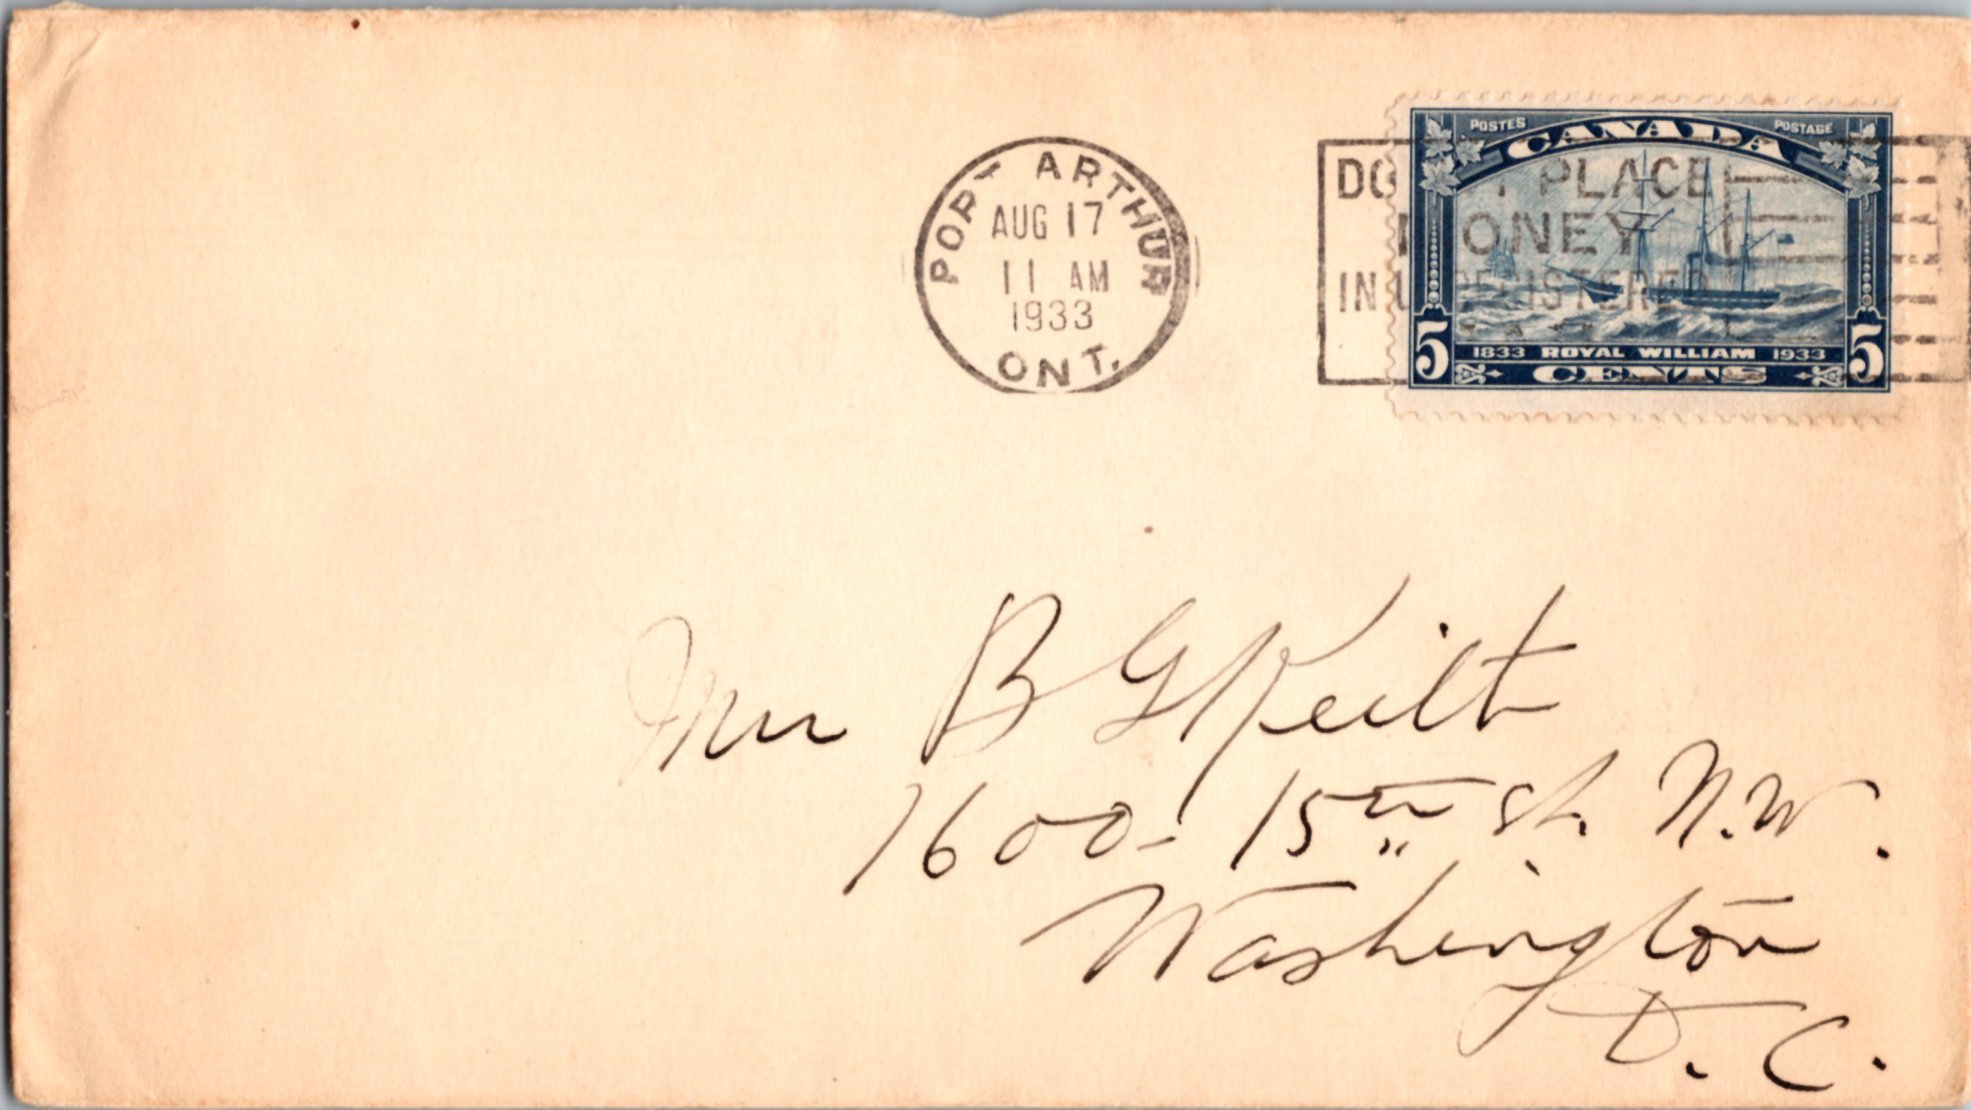 PORT ARTHUR
AUG 17
11 AM
1933
ONT.
DO PLACE
MONEY
IN UNREGISTERED
POSTES POSTAGE
CANADA
5 1833 ROYAL WILLIAM 1933 5
CENTS
B G Keilt
1600 - 15th St. N.W.
Washington
D.C.